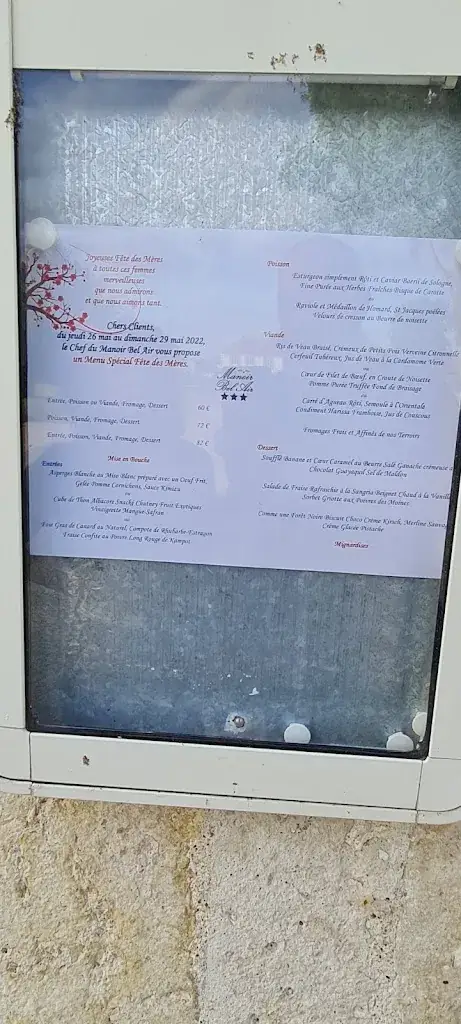 Joyeuses Fête des Mères
à toutes ces femmes
merveilleuses
que nous admirons
et que nous aimons tant.
Chers Clients,
du jeudi 26 mai au dimanche 29 mai 2022,
le Chef du Manoir Bel Air vous propose
un Menu Spécial Fête des Mères.
Entrée, Poisson ou Viande, Fromage, Dessert
60 €
Poisson, Viande, Fromage, Dessert
72 €
Entrée, Poisson, Viande, Fromage, Dessert
82 €
Mise en Bouche
Entrées
Asperges Blanche au Miso Blanc préparé avec un Oeuf Frit,
Gelée Pomme Cornichons, Sauce Kimizu
ou
Cube de Thon Albacore Snacké Chutney Fruit Exotiques
Vinaigrette Mangue-Safran
ou
Foie Gras de Canard au Naturel, Compote de Rhubarbe-Estragon
Fraise Confite au Poivre Long Rouge de Kampot
Manoir
Bel Air
Poisson
Esturgeon simplement Rôti et Caviar Baerii de Sologne,
Fine Purée aux Herbes Fraîches Bisque de Carotte
ou
Raviole et Médaillon de Homard, St Jacques poêlées
Velouté de cresson au Beurre de noisette
Viande
Ris de Veau Braisé, Crémeux de Petits Pois Verveine Citronnelle
Cerfeuil Tubéreux, Jus de Veau à la Cardamome Verte
ou
Cœur de Filet de Bœuf, en Croute de Noisette
Pomme Purée Truffée Fond de Braisage
ou
Carré d'Agneau Rôti, Semoule à l'Orientale
Condiment Harissa Framboise, Jus de Couscous
Fromages Frais et Affinés de nos Terroirs
Dessert
Soufflé Banane et Cœur Caramel au Beurre Salé Ganache crémeuse
Chocolat Guayaquil Sel de Maldon
Salade de Fraise Rafraichie à la Sangria Beignet Chaud à la Vanille
Sorbet Griotte aux Poivres des Moines
Comme une Forêt Noire Biscuit Choco Crème Kirsch, Merline
Crème Glacée Pistache
Mignardises